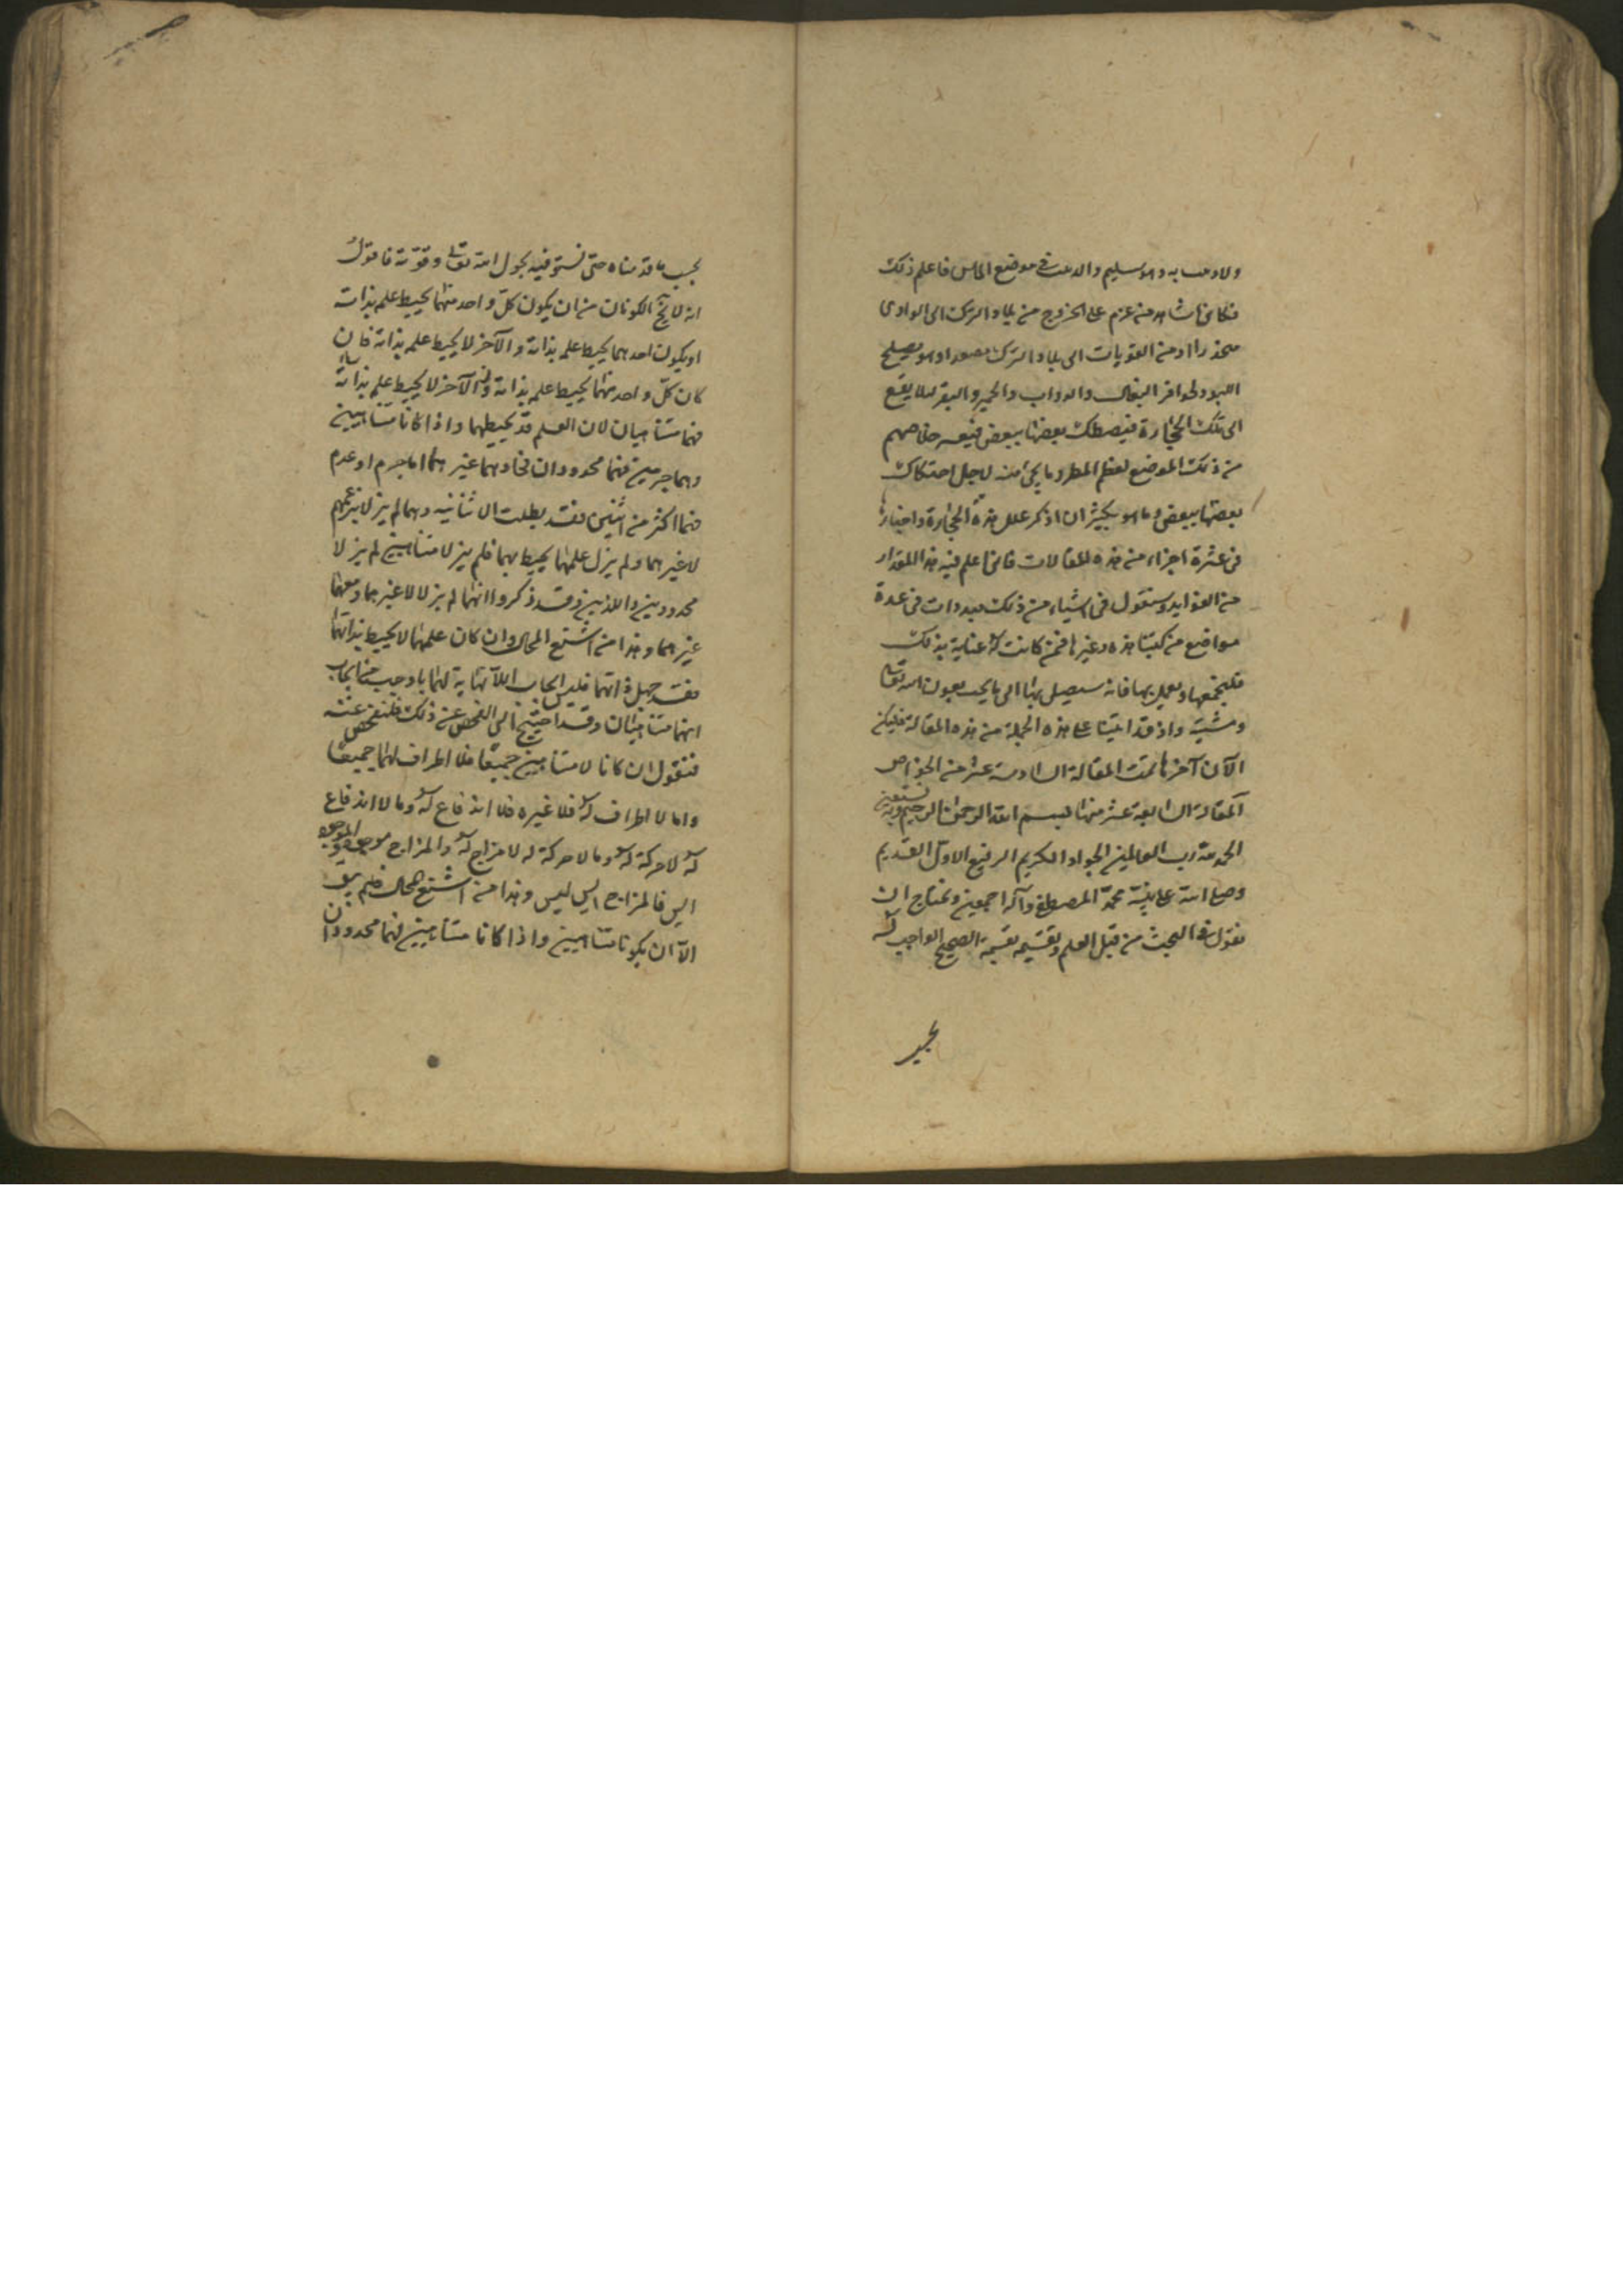 ولا وصب به وهو سليم والدعث في موضع الماس فاعلم ذلك
فكانما شاهد من عزم على الخروج من بلاد الترك الى الوادى
منحدرا او من القريات الى بلاد الترك مصعدا وهو يصلح
اللبود لحوافر البغال والدواب والحمير والبقر لئلا يقع
الى تلك الحجارة فيصطك بعضها ببعض فيعسر خلاصهم
من ذلك الموضع لعظم المطر وما يجئ منه لاجل احتكاك
بعضها ببعض وما هو بكثير ان اذكر علل هذه الحجارة واخبارها
فى عشرة اجزاء من هذه المقالات فانى اعلم فيه هذا المقدار
من الفوايد وسنقول فى اشياء من ذلك مبدوات فى عدة
مواضع من كتبنا هذه وغيرها فمن كانت له عناية بذلك
فليجمعها ويعمل بها فانه سيصل بها الى ما يحب بعون الله تعالى
ومشيته واذ قد اتينا على هذه الجملة من هذه المقالة فليكن
الآن آخرها تمت المقالة السادسة عشر من الخواص
المقالة السابعة عشر منها بسم الله الرحمن الرحيم وبه نستعين
الحمد لله رب العالمين الجواد الكريم الرفيع الاول القديم
وصلى الله على نبيه محمد المصطفى وآله اجمعين ونحتاج ان
نقول فى البحث من قبل العلم وتقسيمه تقسيمة الصحيح الواجب له
بحسب ما قدمناه حتى نستوفيه بحول الله تعالى وقوته فاقول
انه لا يخ الكونان من ان يكون كل واحد منهما يحيط علمه بذاته
او يكون احدهما يحيط علمه بذاته والآخر لا يحيط علمه بذاته فان
كان كل واحد منهما يحيط علمه بذاته والآخر لا يحيط علمه بذاته
فهما متناهيان لان العلم قد يحيطهما واذا كانا متناهيين
وهما جرمين فهما محدودان فحادهما غير هما اما جرم او عدم
فهما اكثر من اثنين فقد بطلت الاثنانية وهما لم يزلا بزعمهم
لا غيرهما ولم يزل علمهما يحيط بهما فلم يزلا متناهيين لم يزلا
محدودين واللذين قد ذكروا انهما لم يزلا لا غيرهما ومعهما
غيرهما وهذا من اشنع المحال وان كان علمهما لا يحيط بذاتهما
فقد جهل ذاتهما فليس ايجاب اللانهاية لهما باوجب من ايجاب
انهما متناهيان وقد احتيج الى الفحص عن ذلك فلنفحص عنه
فنقول ان كانا لا متناهيين جميعا فلا اطراف لهما جميعا
وما لا اطراف له فلا غيره فلا اندفاع له وما لا اندفاع
له لا حركة له وما لا حركة له لا مزاج له والمزاج موجود
ايس فالمزاج ايس ليس وهذا من اشنع المحال فلم يبق
الا ان يكونا متناهيين واذا كانا متناهيين فهما محدودان